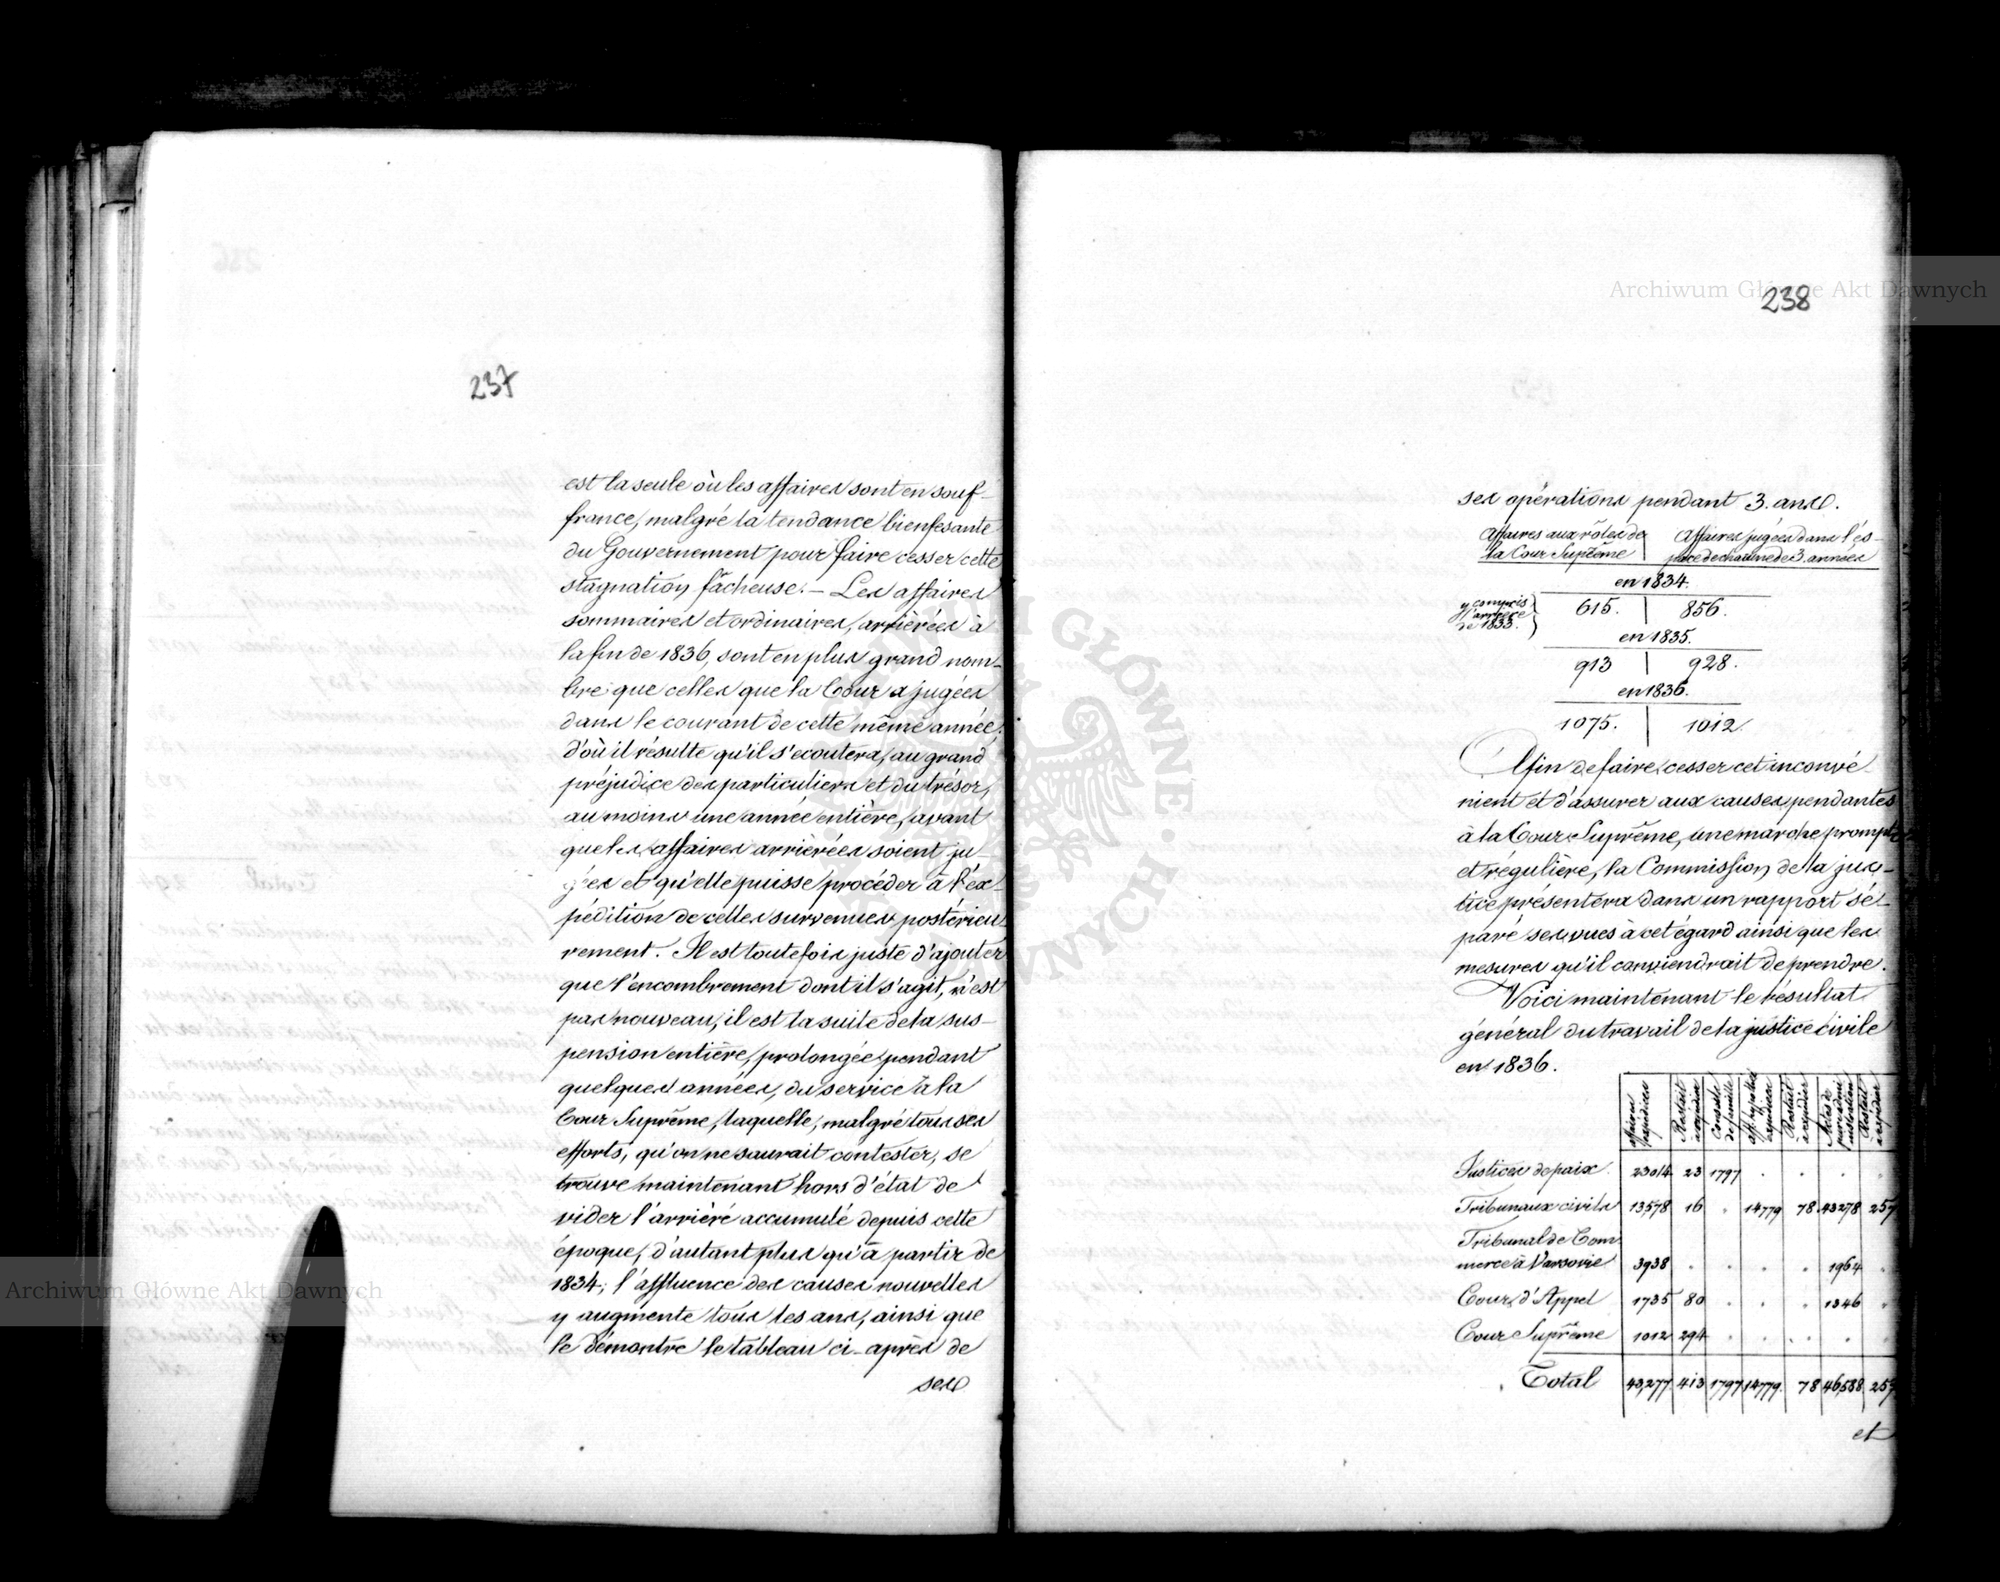 237
est la seule où les affaires sont en souf-
france, malgré la tendance bienfesante
du Gouvernement pour faire cesser cette
stagnation fâcheuse. — Les affaires
sommaires et ordinaires, arriérées à
la fin de 1836, sont en plus grand nom-
bre que celles que la Cour a jugées
dans le courant de cette même année,
d'où il résulte qu'il s'ecoutera, au grand
préjudice des particuliers et du trésor,
au moins une année entière, avant
que les affaires arriérées soient ju-
gées et qu'elle puisse procéder à l'ex-
pédition de celles survenues postérieu-
rement. Il est toutefois juste d'ajouter
que l'encombrement dont il s'agit, n'est
pas nouveau, il est la suite de la sus-
pension entière, prolongée pendant
quelques années, du service à la
Cour Suprême, laquelle, malgré tous ses
efforts, qu'on ne saurait contester, se
trouve maintenant hors d'état de
vider l'arriéré accumulé depuis cette
époque, d'autant plus qu'à partir de
1834, l'affluence des causes nouvelles
y augmente tous les ans, ainsi que
le démontre le tableau ci-après de
ses
238
ses opérations pendant 3. ans.
Affaires aux rôles de la Cour Suprême | Affaires jugées dans l'és-pace de chacune de 3. années
en 1834.
y compris l'arriéré de 1833. } 615. | 856.
en 1835.
913 | 928.
en 1836.
1075. | 1012.
Afin de faire cesser cet inconvé-
nient et d'assurer aux causes pendantes
à la Cour Suprême, une marche prompte
et régulière, la Commission de la jus-
tice présentera dans un rapport sé-
paré ses vues à cet égard ainsi que les
mesures qu'il conviendrait de prendre.
Voici maintenant le résultat
général du travail de la justice civile
en 1836.
affaires expédiées | Restait à expédier | Conseils de famille | expédiées | Restait à expédier | Actes de | Restait à expédier
Justices de paix. 23014 23 1797 . . . .
Tribunaux civils 13,578 16 . 14779 78 43278 257
Tribunal de Com
merce à Varsovie 3938 . . . . 1964 .
Cour d'Appel 1735 80 . . . 1346 .
Cour Suprême 1012 294 . . . . .
Total 43,277 413 1797 14779. 78 46,588 257
et
Archiwum Główne Akt Dawnych
Archiwum Główne Akt Dawnych